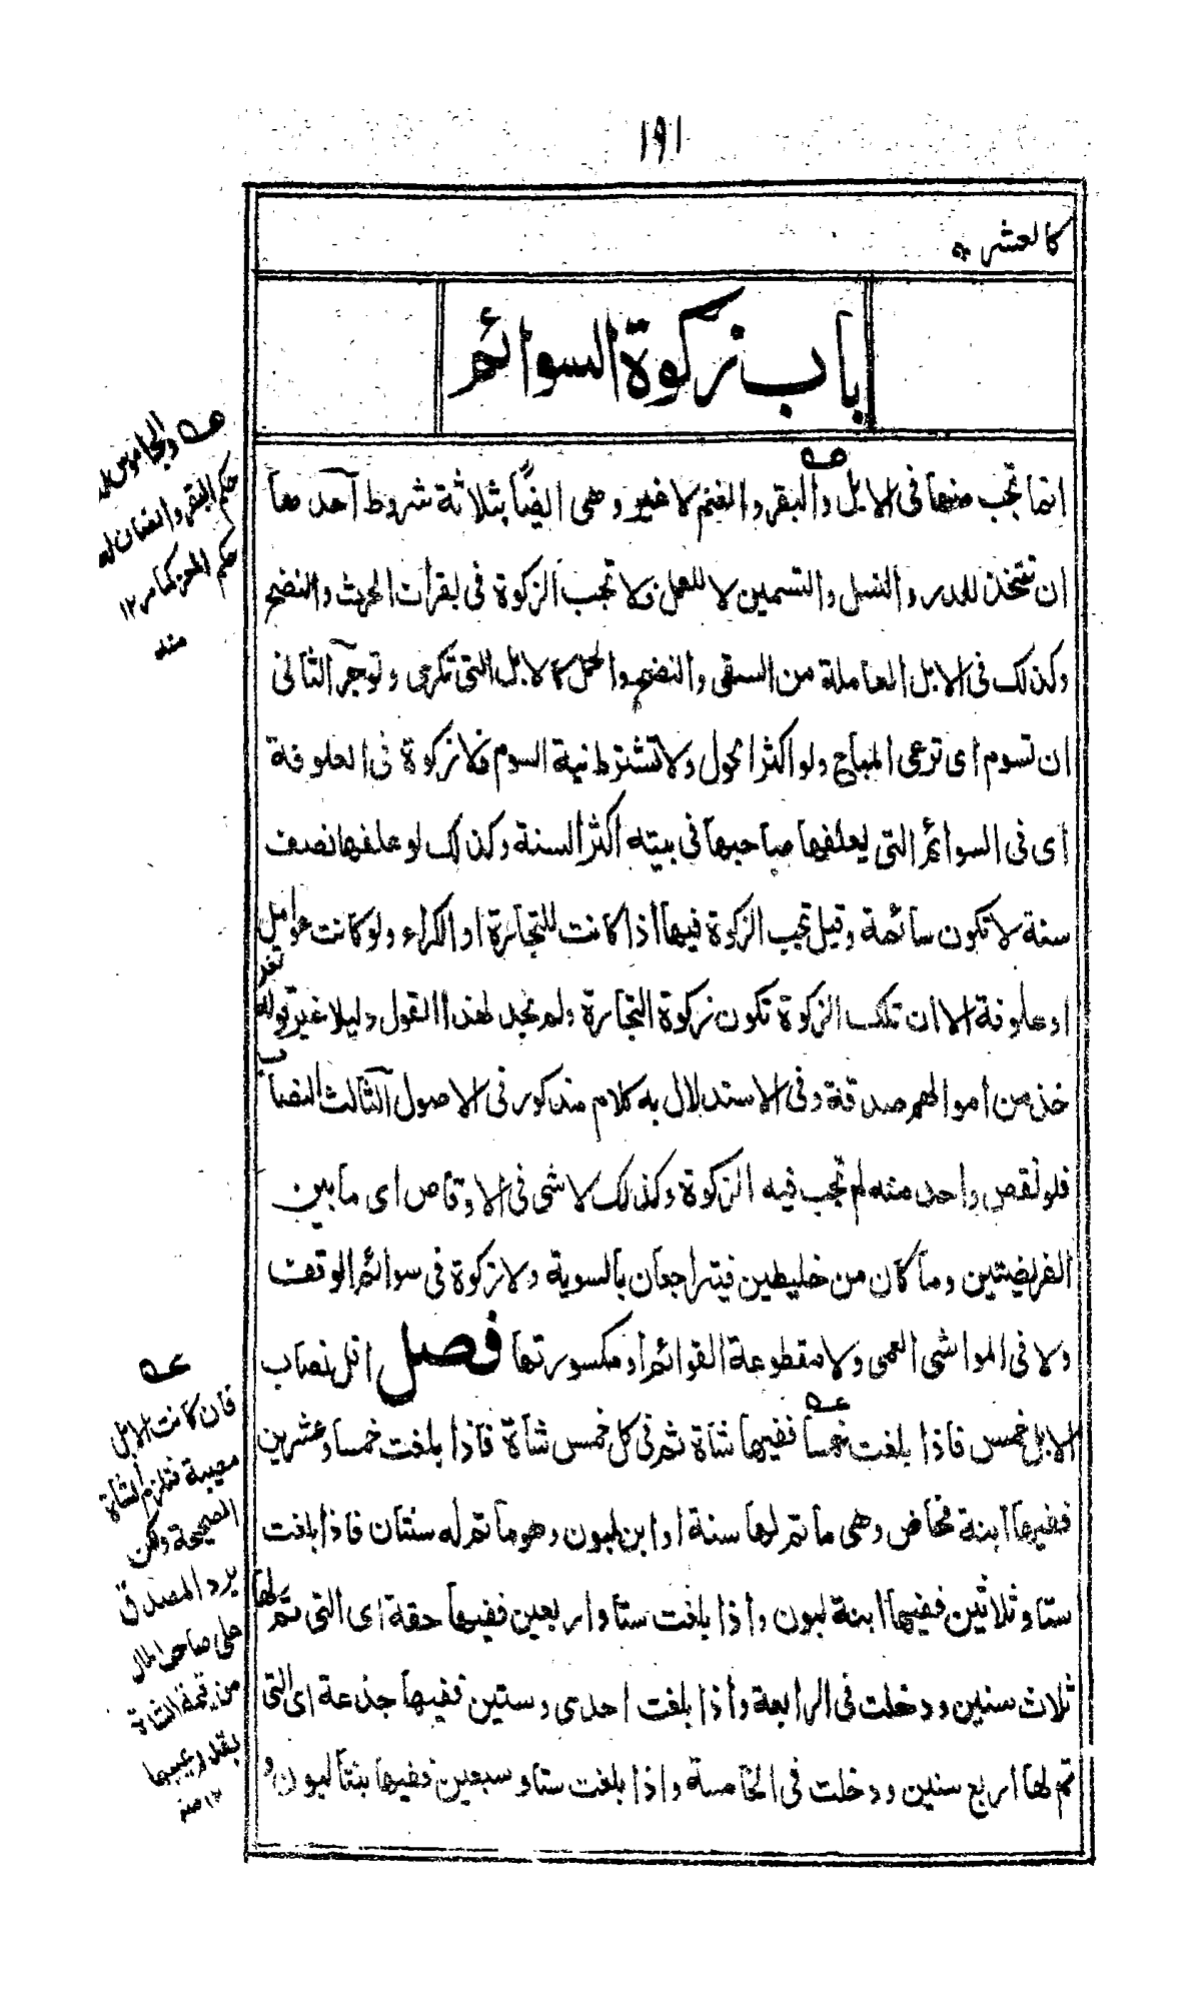 ١٩١
كالعشر
باب زكوة السوائم
انما تجب منها فى الابل والبقر والغنم لا غير وهى ايضًا بثلاثة شروط آحدها
ان تتخذ للدر والنسل والتسمين لا للعمل فلا تجب الزكوة فى بقرات الحرث والنضح
وكذلك فى الابل العاملة من السقى والنضح والحمل كالابل التى تكرى وتوجر آلثانى
ان تسوم اى ترعى المباح ولو اكثر الحول ولا تشترط نية السوم فلا زكوة فى العلوفة
اى فى السوائم التى يعلفها صاحبها فى بيته اكثر السنة وكذلك لو علفها نصف
سنة لا تكون سائمة وقيل تجب الزكوة فيها اذا كانت للتجارة او الكراء ولو كانت عوامل
او علوفة الا ان تلك الزكوة تكون زكوة التجارة ولم نجد لهذا القول دليلا غير قوله تعه
خذ من اموالهم صدقة وفى الاستدلال به كلام مذكور فى الاصول آلثالث النصاب
فلو نقص واحد منه لم تجب فيه الزكوة وكذلك لا شى فى الاوقاص اى ما بين
الفريضتين وما كان من خليطين فيتراجعان بالسوية ولا زكوة فى سوائم الوقف
ولا فى المواشى العمى ولا مقطوعة القوائم او مكسورتها فصل اقل نصاب
الابل خمس فاذا بلغت خمسا ففيها شاة ثم فى كل خمس شاة فاذا بلغت خمسا وعشرين
ففيها ابنة مخاض وهى ما تم لها سنة او ابن لبون وهو ما تم له سنتان فاذا بلغت
ستا وثلاثين ففيها ابنة لبون واذا بلغت ستا واربعين ففيها حقة اى التى تم لها
ثلاث سنين ودخلت فى الرابعة واذا بلغت احدى وستين ففيها جذعة اى التى
تم لها اربع سنين ودخلت فى الخامسة واذا بلغت ستا وسبعين ففيها بنتا لبون و
والجاموس له
حكم البقر والضان له
حكم المعز كما مر ١٢
منه
فان كانت الابل
معيبة فتلزم الشاة
الصحيحة ولكن
يرد المصدق
على صاحب المال
من قيمة الشاة
بقدر عيبها
١٢ منه